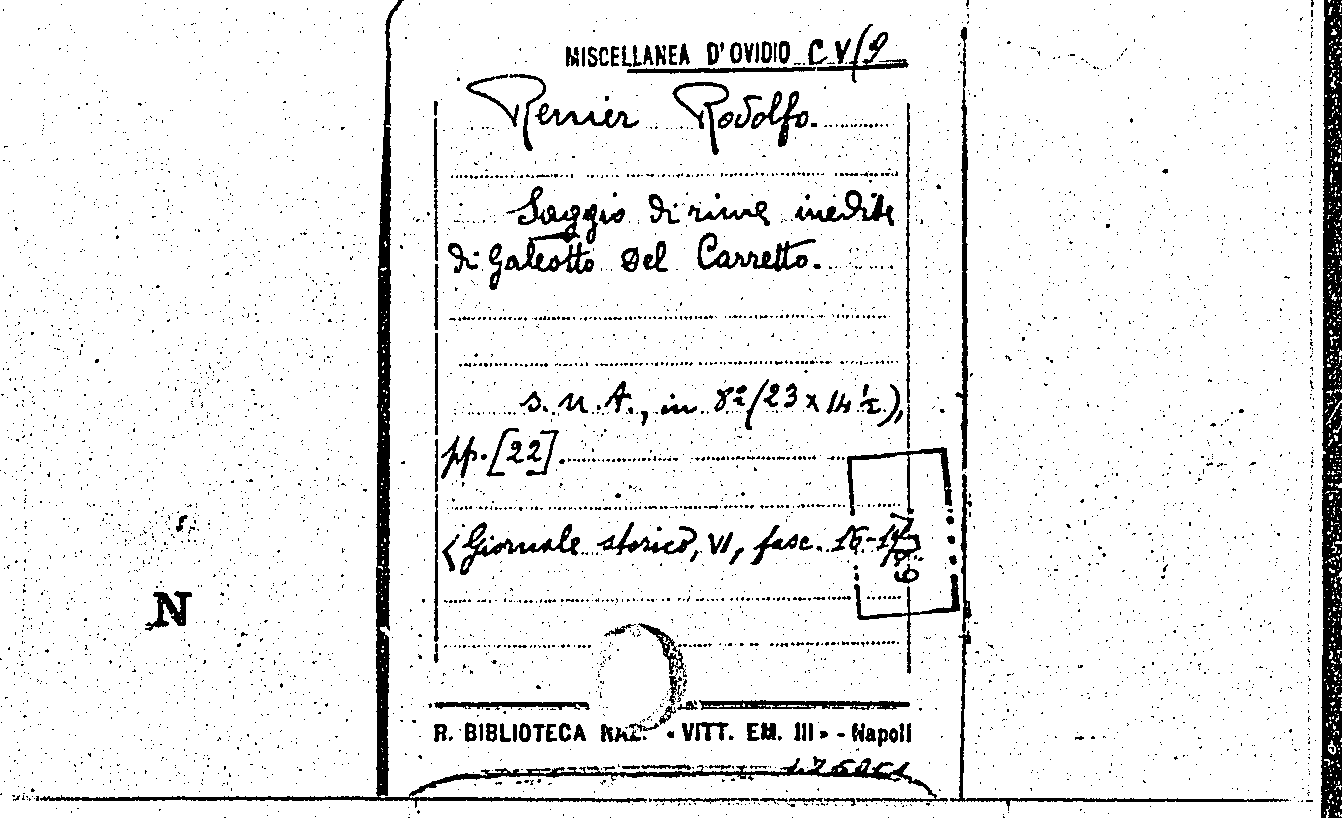 MISCELLANEA D'OVIDIO C V/9
Renier Rodolfo.
Saggio di rime inedite
di Galeotto Del Carretto.
s. n. t., in 8º (23 x 14 ½),
pp. [22].
(Giornale storico, VI, fasc. 16-17)
N
R. BIBLIOTECA NAZ. « VITT. EM. III » - Napoli